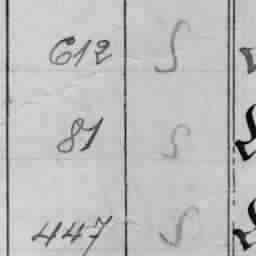 612 S
81 S
447 S